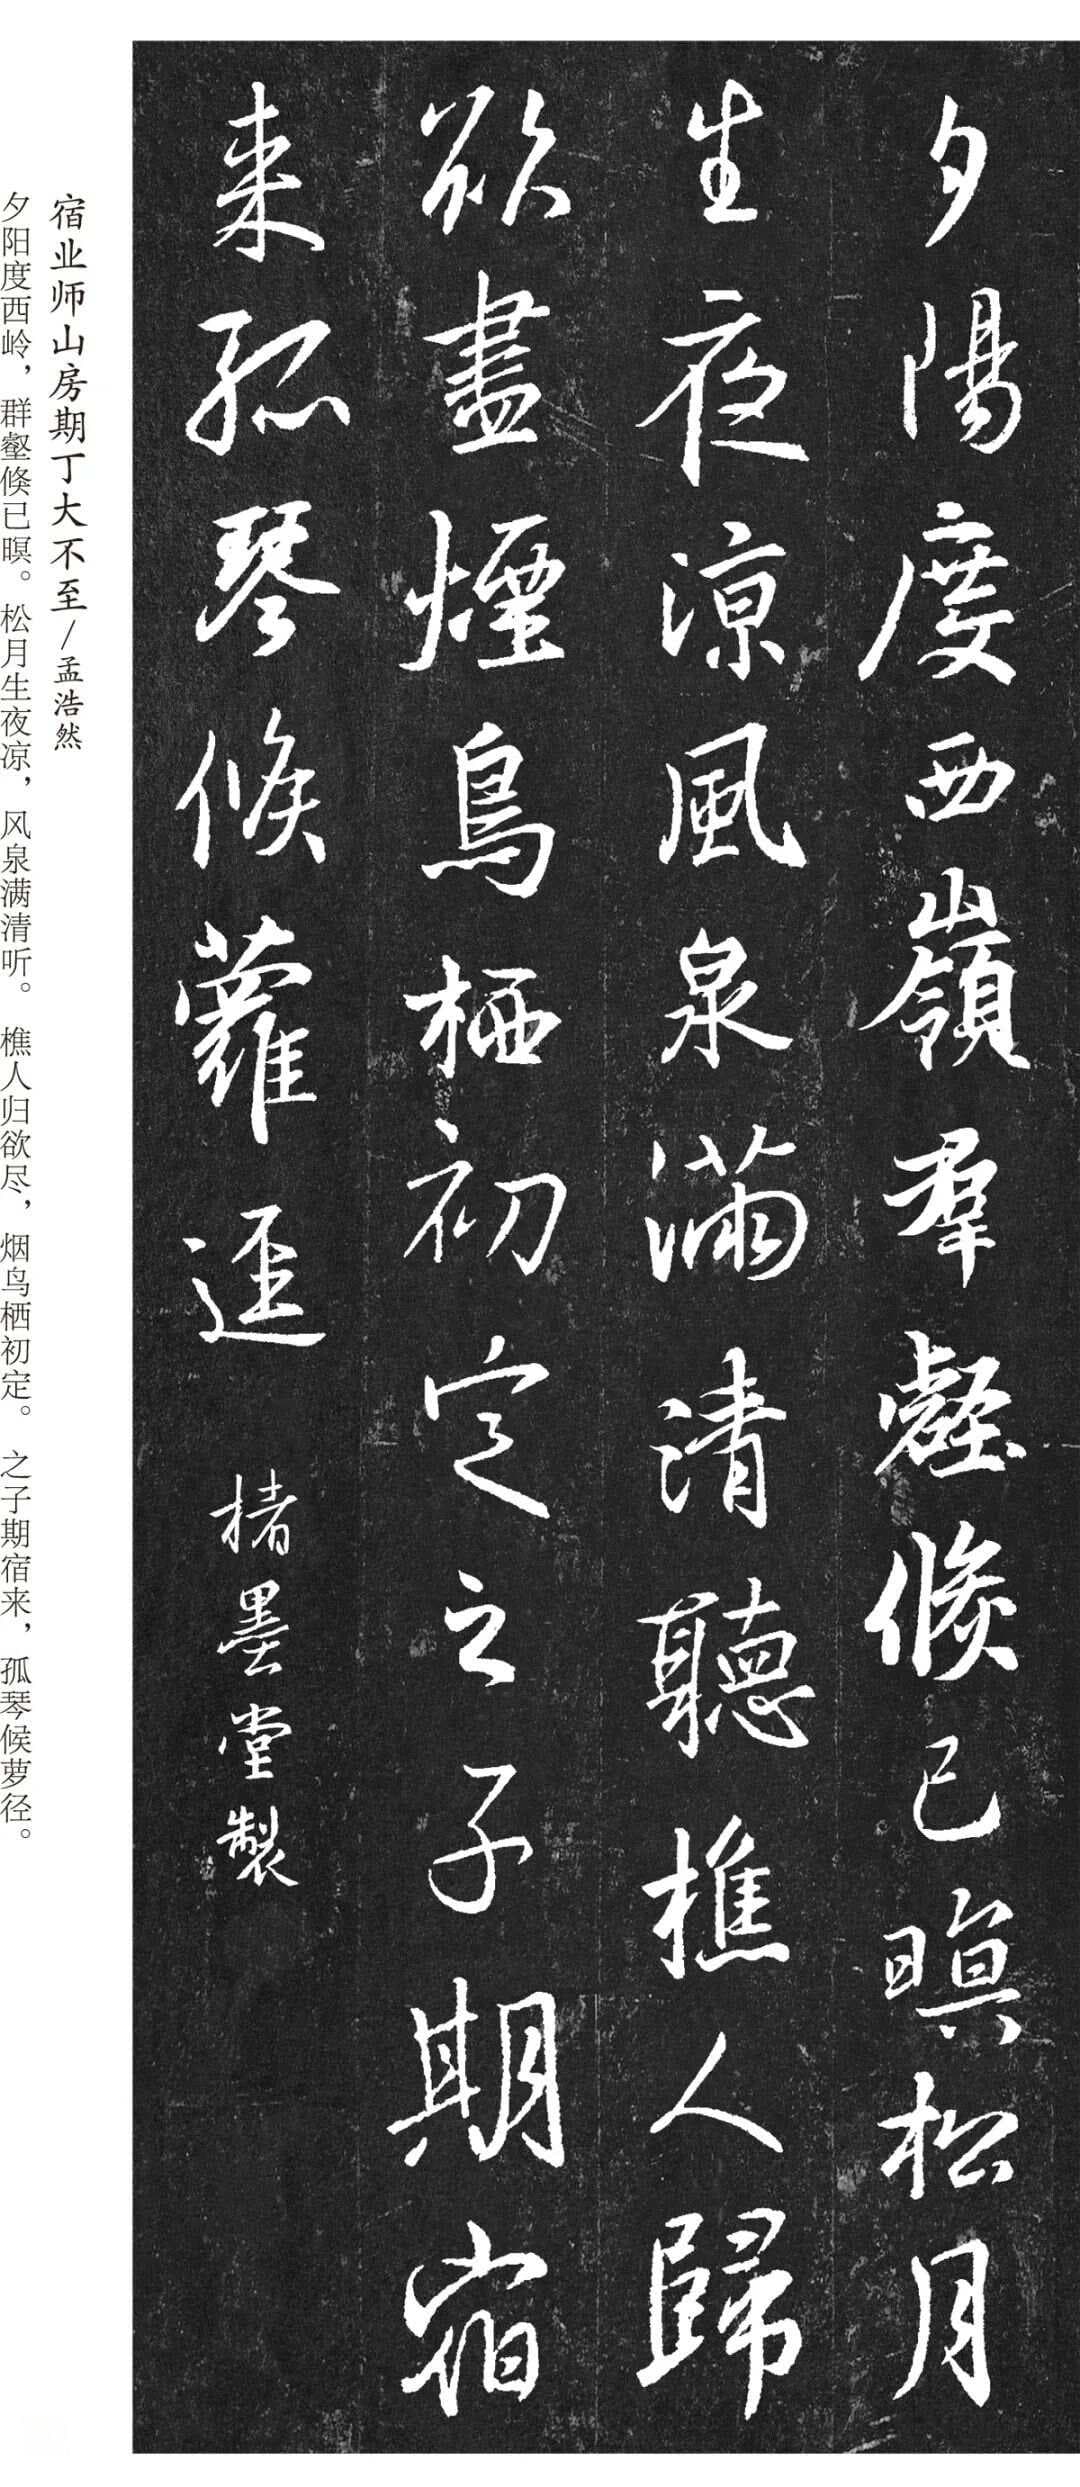 夕陽度西嶺羣壑倐已暝松月
生夜涼風泉滿清聽樵人歸
欲盡煙鳥栖初定之子期宿
来孤琴候蘿逕
楮墨堂製
宿业师山房期丁大不至/孟浩然
夕阳度西岭，群壑倏已暝。松月生夜凉，风泉满清听。樵人归欲尽，烟鸟栖初定。之子期宿来，孤琴候萝径。